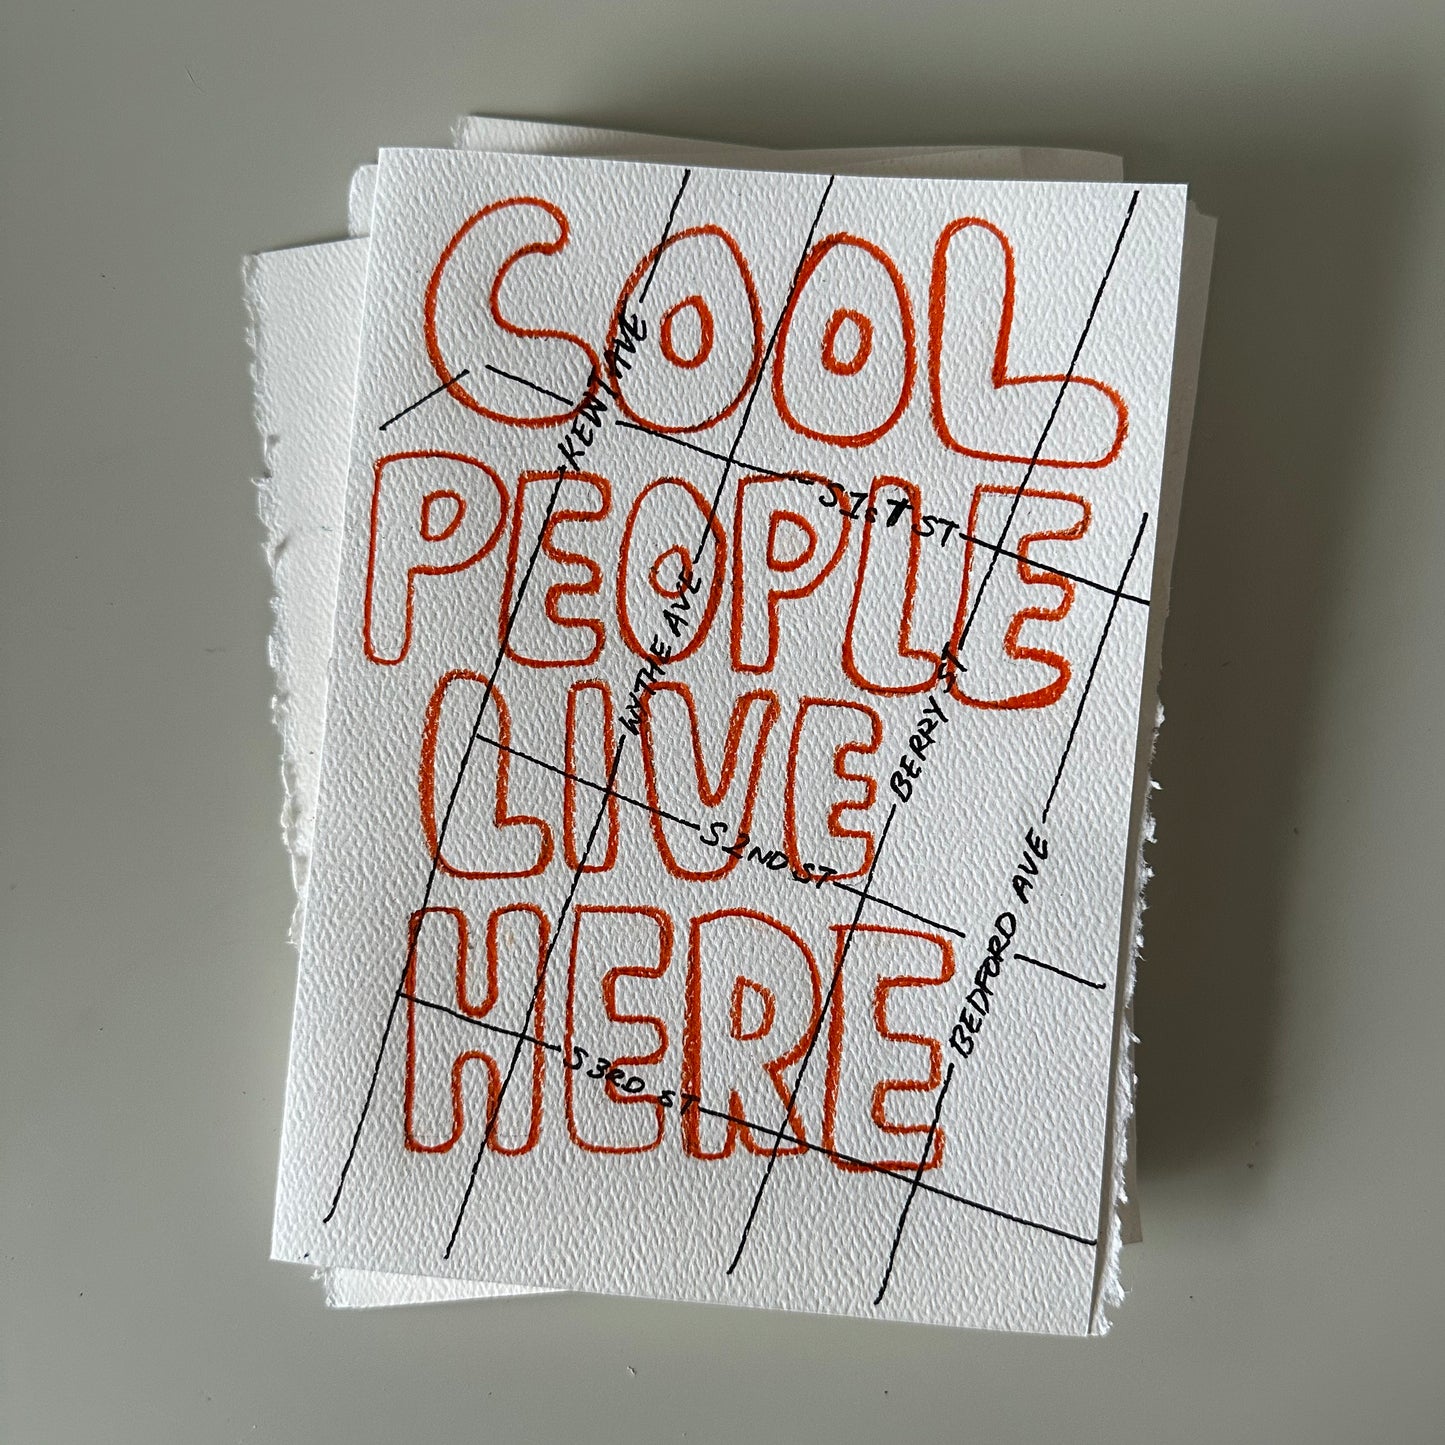 COOL
PEOPLE
LIVE
HERE
KENT AVE
S 1ST ST
WYTHE AVE
BERRY ST
S 2ND ST
BEDFORD AVE
S 3RD ST